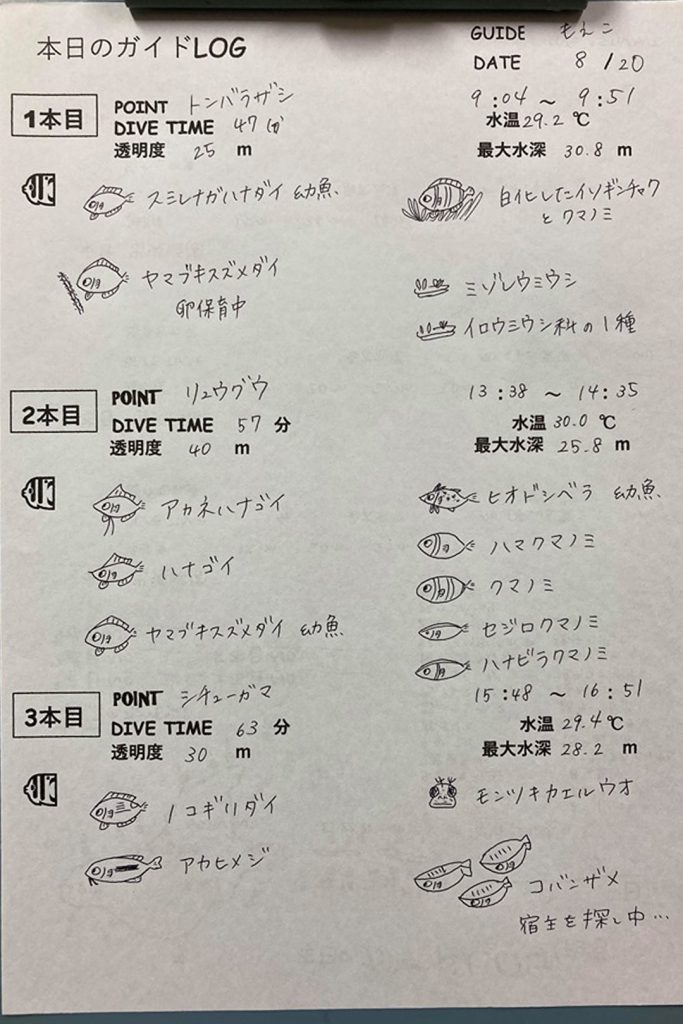 本日のガイドLOG
GUIDE もえこ
DATE 8/20
1本目
POINT トンバラザシ
DIVE TIME 47分
透明度 25 m
9:04 ~ 9:51
水温 29.2 ℃
最大水深 30.8 m
スミレナガハナダイ 幼魚
ヤマブキスズメダイ
卵保育中
白化したイソギンチャク
とクマノミ
ミゾレウミウシ
イロウミウシ科の1種
2本目
POINT リュウグウ
DIVE TIME 57 分
透明度 40 m
13:38 ~ 14:35
水温 30.0 ℃
最大水深 25.8 m
アカネハナゴイ
ハナゴイ
ヤマブキスズメダイ 幼魚
ヒオドシベラ 幼魚
ハマクマノミ
クマノミ
セジロクマノミ
ハナビラクマノミ
3本目
POINT シチューガマ
DIVE TIME 63 分
透明度 30 m
15:48 ~ 16:51
水温 29.4℃
最大水深 28.2 m
ノコギリダイ
アカヒメジ
モンツキカエルウオ
コバンザメ
宿主を探し中…